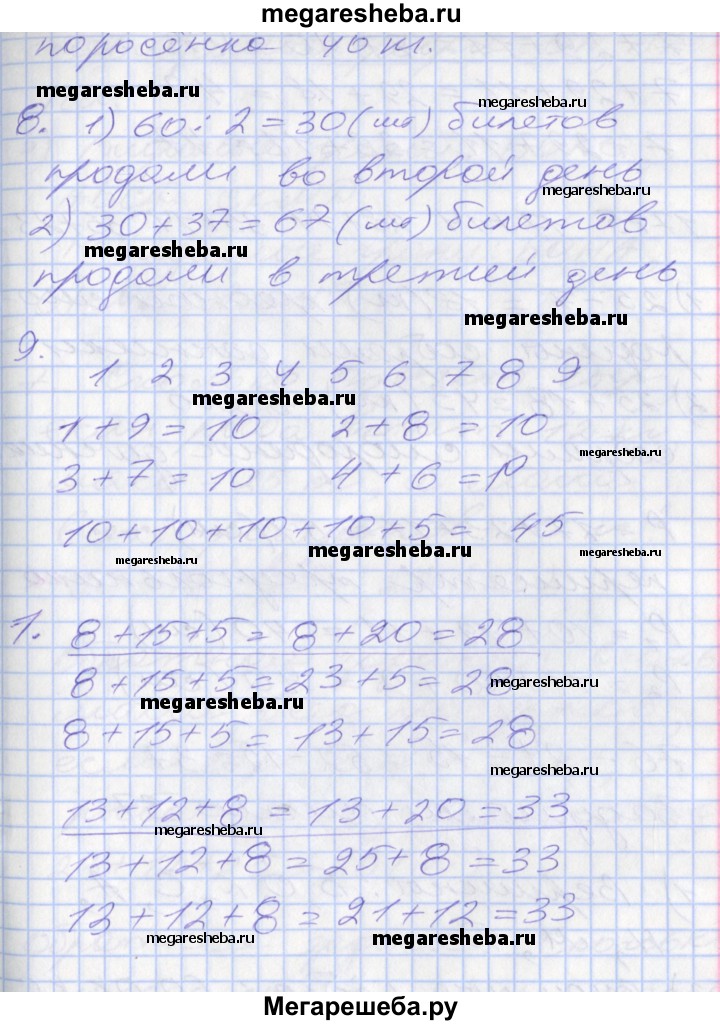 megaresheba.ru
поросёнка 40 кг.
megaresheba.ru
megaresheba.ru
8. 1) 60 : 2 = 30 (шт) билетов
продали во второй день
megaresheba.ru
2) 30 + 37 = 67 (шт) билетов
megaresheba.ru
продали в третий день
megaresheba.ru
9.
1 2 3 4 5 6 7 8 9
megaresheba.ru
1 + 9 = 10 2 + 8 = 10
megaresheba.ru
3 + 7 = 10 4 + 6 =
10 + 10 + 10 + 10 + 5 = 45
megaresheba.ru megaresheba.ru megaresheba.ru
1. 8 + 15 + 5 = 8 + 20 = 28
8 + 15 + 5 = 23 + 5 = 28
megaresheba.ru
megaresheba.ru
8 + 15 + 5 = 13 + 15 = 28
megaresheba.ru
13 + 12 + 8 = 13 + 20 = 33
megaresheba.ru
13 + 12 + 8 = 25 + 8 = 33
13 + 12 + 8 = 21 + 12 = 33
megaresheba.ru megaresheba.ru
Мегарешеба.ру